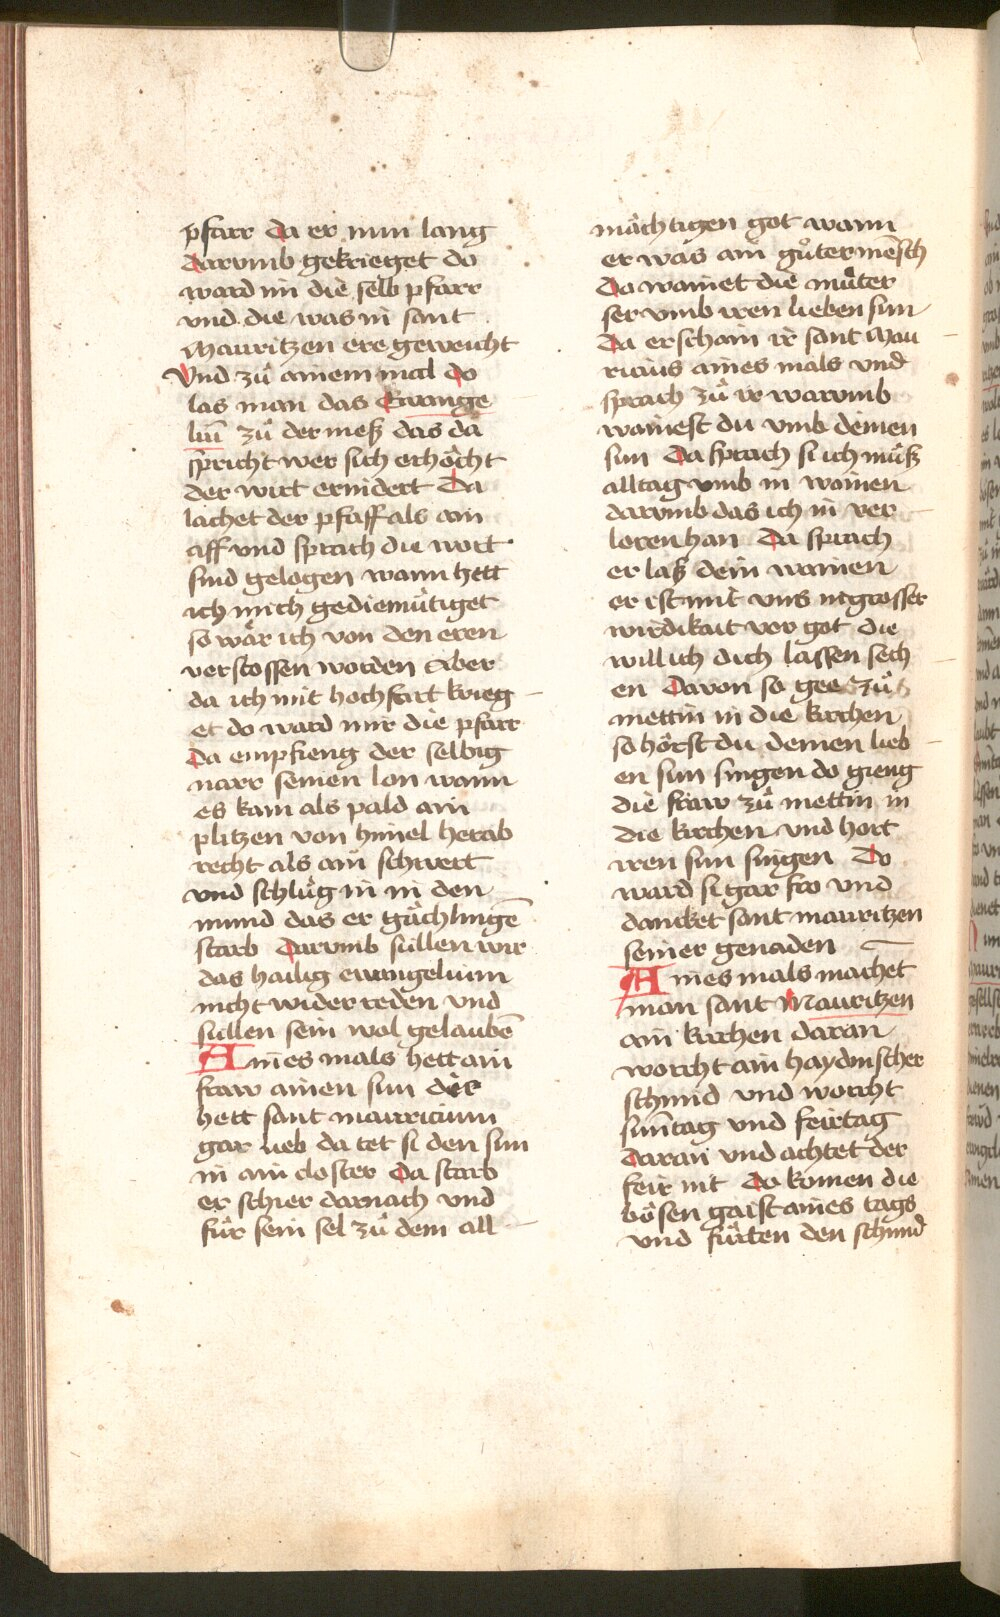 pfarr Da er nun lang
Darvmb gekrieget do
ward im die selb pfarr
vnd die was in sant
Mauritzen ere geweicht
Vnd zuͦ ainem mal do
las man das Ewange
liū zuͦ der meß das da
spricht wer sich erhoͤcht
der wirt ernidert Da
lachet der pfaff als ain
aff vnd sprach die wort
sind gelogen wann hett
ich mich gediemuͤtiget
so waͤr ich von den eren
verstossen worden Aber
da ich mit hochfart krieg
et do ward mir die pfarr
Da empfieng der selbig
narr seinen lon wann
es kam als pald ain
plitzen von himel herab
recht als ain schwert
vnd schluͦg in in den
mund das er gaͤchlingē
starb Darvmb sullen wir
das hailig ewangelium
nicht wider reden vnd
sullen sein wol gelaubē
Aines mals hett ain
fraw ainen sun der
hett sant mauricium
gar lieb da tet si den sun
in ain closter Da starb
er schier darnach vnd
fuͤr sein sel zuͦ dem all
maͤchtigen got wann
er was ain guͦter mensch
Da wainet die muͦter
ser vmb iren lieben sun
Da erschain ir sant Mau
ricius aines mals vnd
sprach zuͦ ir warvmb
wainest du vmb deinen
sun Da sprach si ich muͦß
alltag vmb in wainen
darvmb das ich in ver
loren han Da sprach
er laß dein wainen
er ist mit vns in grosser
wirdikait vor got die
will ich dich lassen sech
en Davon so gee zuͦ
mettin in die kirchen
so hoͤrst du deinen lieb
en sun singen do gieng
die fraw zuͦ mettin in
die kirchen vnd hort
iren sun singen Do
ward si gar fro vnd
dancket sant mauritzen
seiner genaden
Aines mals machet
man sant Mauritzen
ain kirchen daran
worcht ain haydnischer
schmid vnd worcht
suntag vnd feirtag
Daran vnd achtet der
feir nit Do komen die
boͤsen gaist aines tags
vnd fuͦrten den schmid